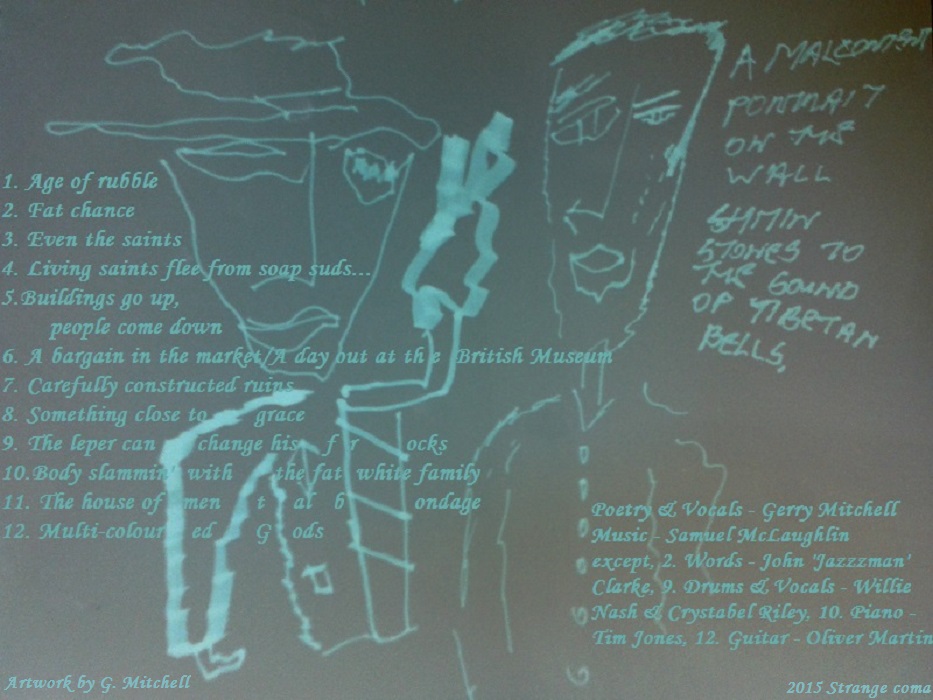 A MALCONTENT
PORTRAIT
ON THE
WALL
SHITIN
STONES TO
THE SOUND
OF TIBETAN
BELLS.
1. Age of rubble
2. Fat chance
3. Even the saints
4. Living saints flee from soap suds...
5.Buildings go up,
people come down
6. A bargain in the market/A day out at the British Museum
7. Carefully constructed ruins
8. Something close to grace
9. The leper can change his f r ocks
10.Body slammin' with the fat white family
11. The house of men t al b ondage
12. Multi-colour ed G ods
Poetry & Vocals - Gerry Mitchell
Music - Samuel McLaughlin
except, 2. Words - John 'Jazzzman'
Clarke, 9. Drums & Vocals - Willie
Nash & Crystabel Riley, 10. Piano -
Tim Jones, 12. Guitar - Oliver Martin
Artwork by G. Mitchell
2015 Strange coma